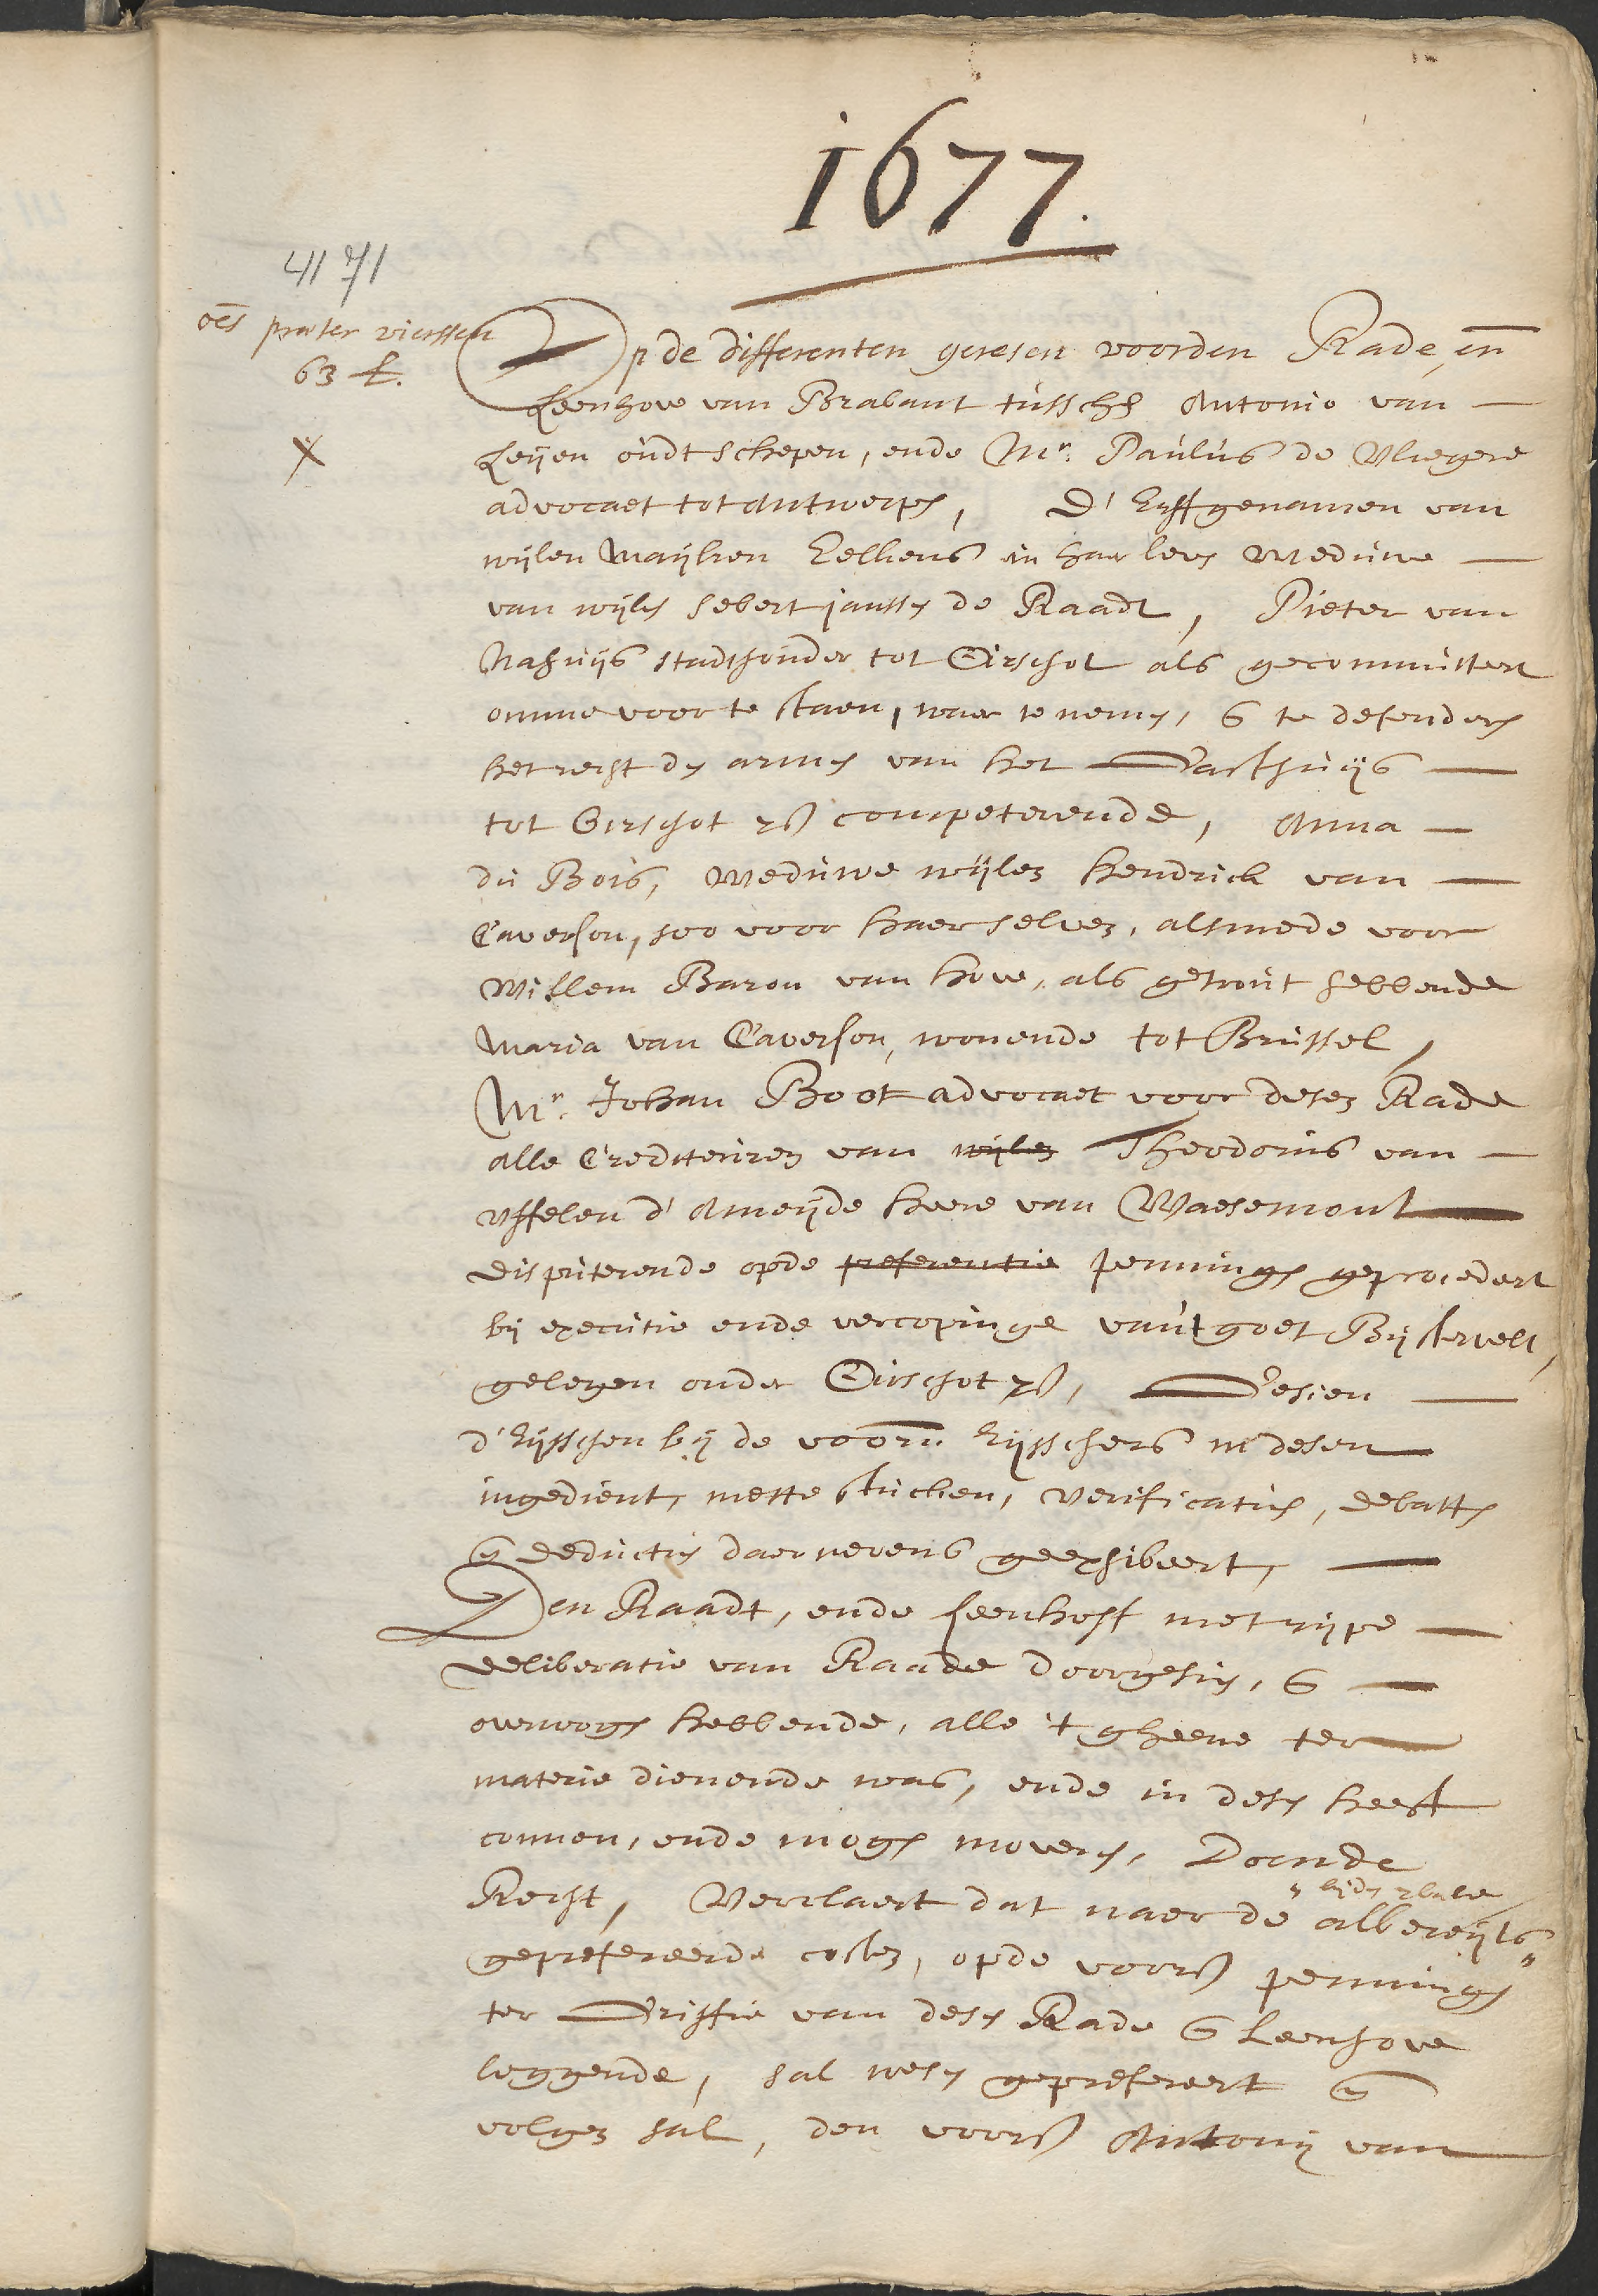 1677.
4171
oēs præter vierssen
63 £.
X
Op de differenten geresen voorden Rade, en̄
Leenhove van Brabant tusschē Antonio van
Leijen oudt schepen, ende Mr. Paulus de Vliegere
advocaet tot Antwerpē, d'Erffgenamen van
wijlen Maijken Eelkens in haer levē Weduwe
van wijlē Sebert janssē de Raadt, Pieter van
Nahuijs stadthouder tot Oirschot als gecommitteert
omme voor te staen, waer te nemē, en te defenderē
het recht dē armē van het Gasthuijs
tot Oirschot etc. competerende, Anna
du Bois, Weduwe wijlen Hendrick van
Caverson, soo voor haer selven, alsmede voor
Willem Baron van Hove, als getrout hebbende
Maria van Caverson, wonende tot Brussel,
Mr. Johan Boot advocaet voor desen Rade
alle Crediteuren van wijlen Theodorus van
Uffelen d'Ameijde heere van Waesemont
disputerende opde preferentie penningē geprocedert
bij executie ende vercopinge van't goet Bijstervelt,
gelegen onder Oirschot etc., Gesien
d'Eijsschen bij de voorn. Eijsschers in desen
ingedient, mette stucken, verificatiē, debattē
en deductiē daernevens geexhibeert,
Den Raadt, ende Leenhoff met rijpe
deliberatie van Raade doorgesiē, en
overwogē hebbende, alle 't gheene ter
materie dienende was, ende in desē heeft
connen, ende mogē moverē, Doende
Recht, Verclaert dat naer de albereijts
geprefereerde costen, opde voors. penningē
ter Griffie van desē Rade en Leenhove
leggende, sal wesē geprefereert en
volgen sal, den voors. Antonij van